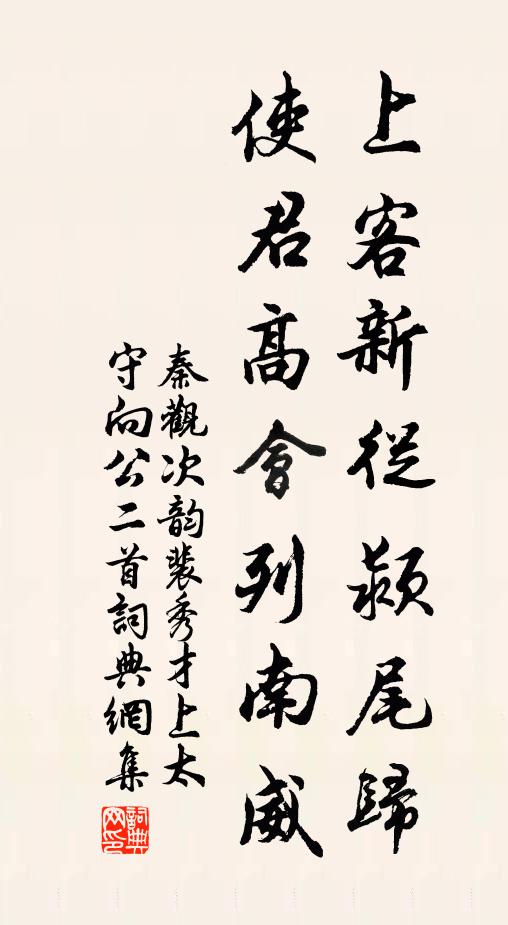 上客新從潁尾歸
使君高會列南威
秦觀次韵裴秀才上太
守向公二首詞典網集
詞典網印